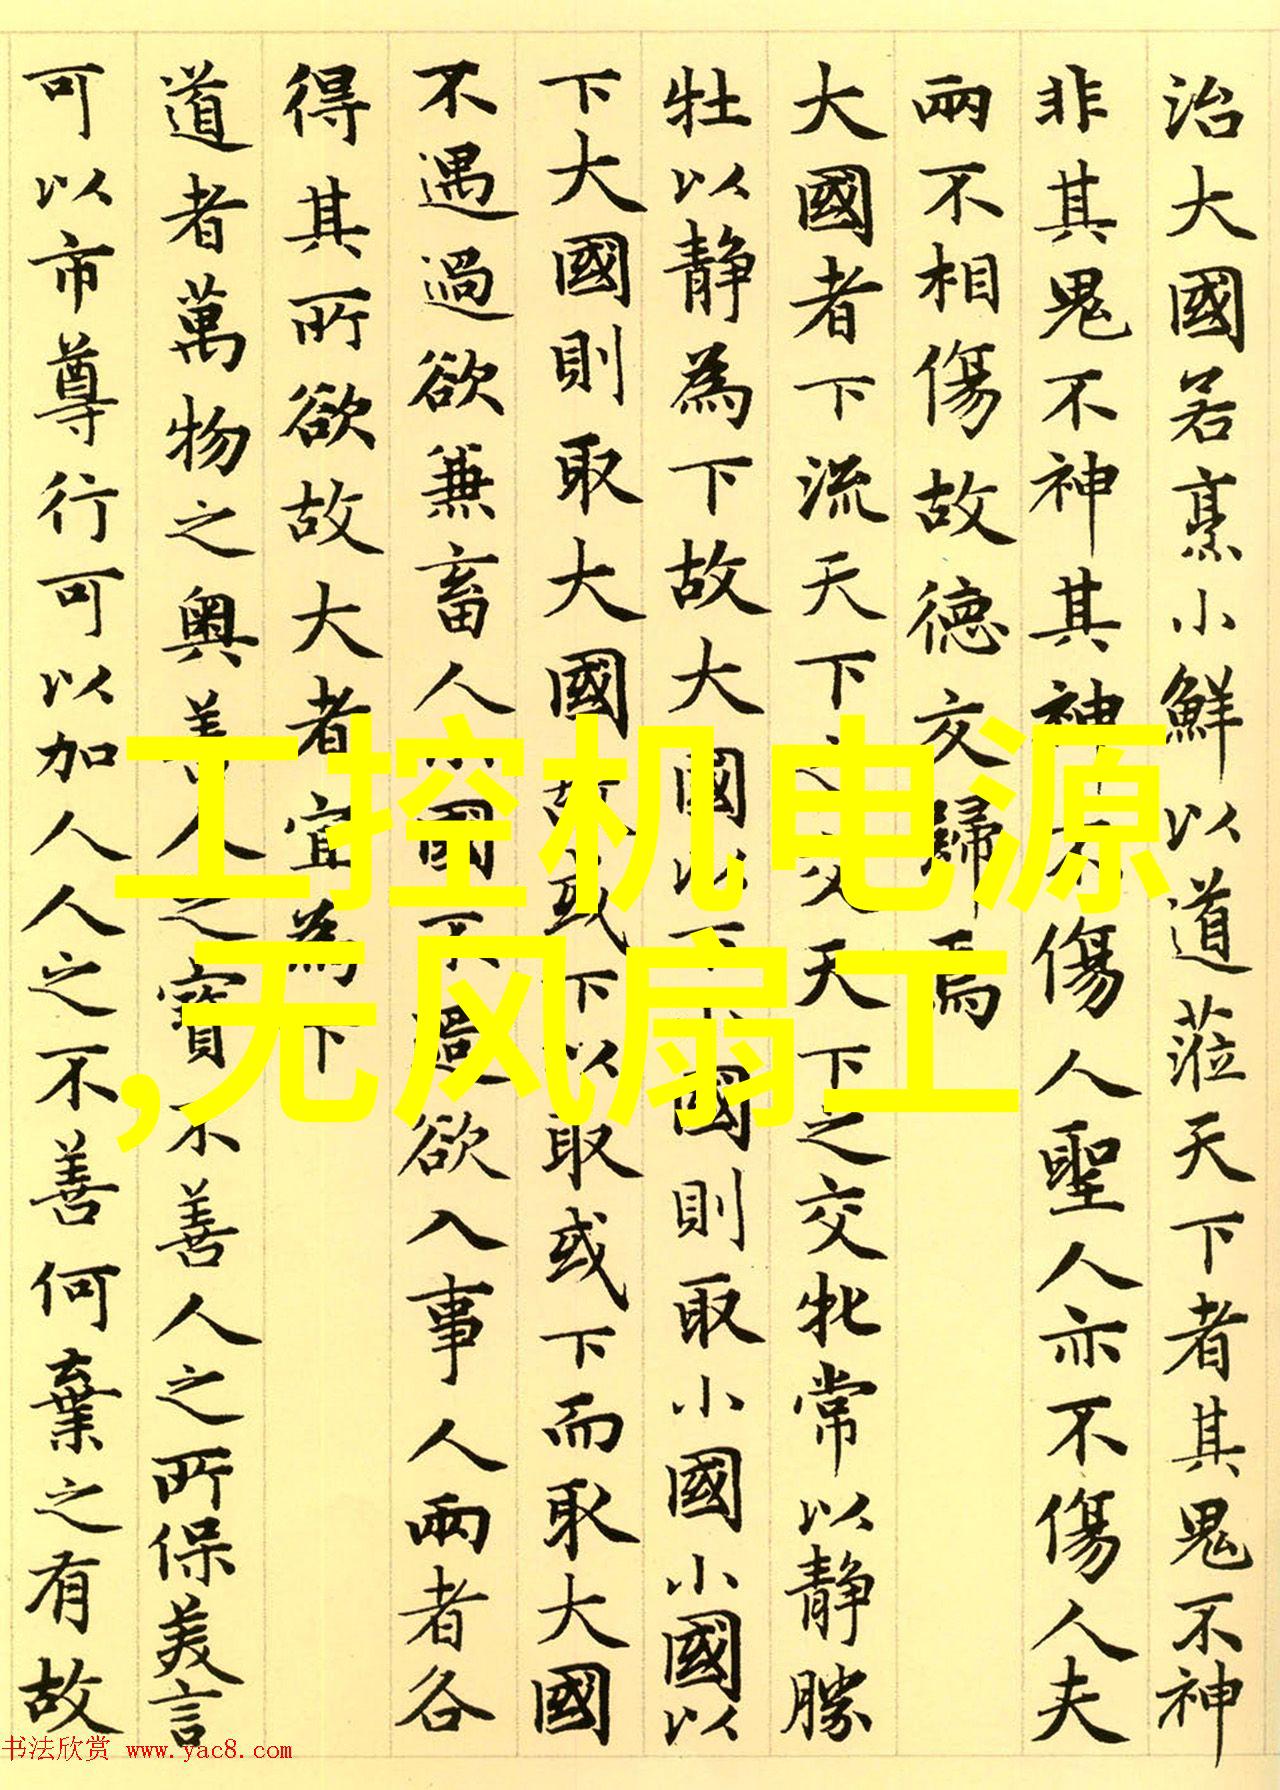 治大國若烹小鮮以道蒞天下者其鬼不神
非其鬼不神其神不傷人聖人亦不傷人夫
兩不相傷故德交歸焉
大國者下流天下之交天下之交牝常以靜勝
牡以靜為下故大國以下小國則取小國小國以
下大國則取大國故或下以取或下而取大國
不遇過欲兼畜人小國不過欲入事人兩者各
得其所欲故大者宜為下
道者萬物之奧善人之寶不善人之所保美言
可以市尊行可以加人人之不善何棄之有故
工控机电源
,无风扇工
书法欣赏 www.yac8.com